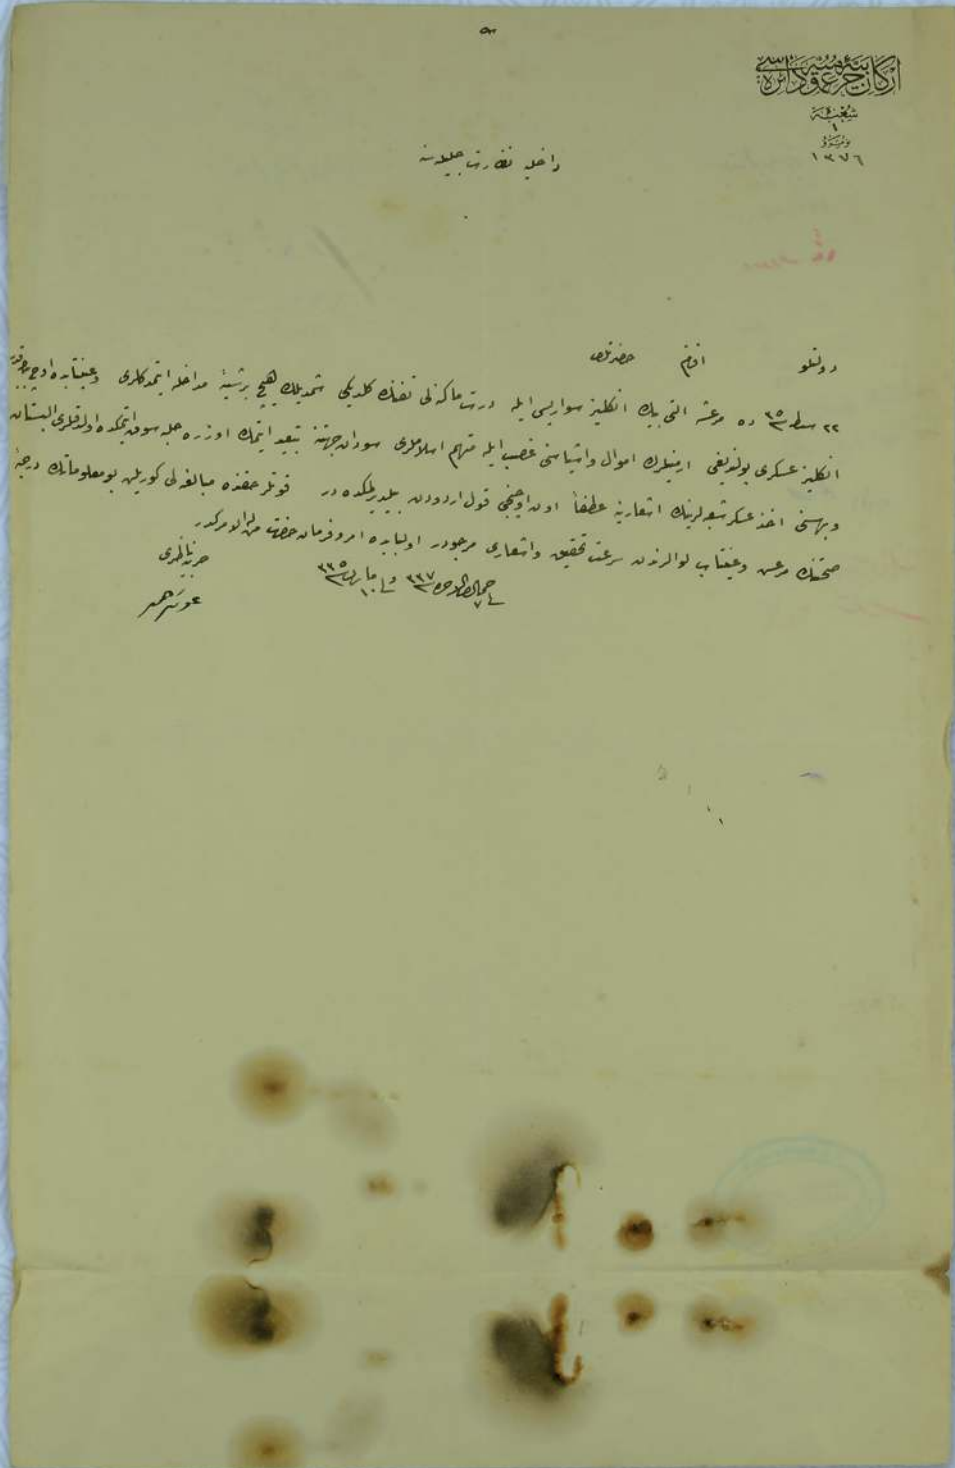 اركان حربيهٔ عموميه دائره‌سى
شعبه
١
نومرو
١٣٧٦
داخليه نظارت جليله‌سنه
دولتلو افندم حضرتلرى
٢٢ شباط ٣٥ ده مرعشه التى بيك انكليز سواريسى ايله درت ماكنه‌لى تفنك كلديكى شمديلك هيچ برشيئه مداخله ايتمدكلرى وعينتابده اوچ بيك قدر
انكليز عسكرى بولنديغى ارمنيلرك اموال واشياسنى غصب ايله متهم اسلاملرى سودان جهتنه تبعيد ايتمك اوزره حلبه سوق ايتمكده اولدقلرى البستان
وبهسنى اخذ عسكر شعبه‌لرينك اشعارينه عطفاً اون اوچنجى قول اردودن بيلديرلمكده در قوتلر حقنده مبالغه‌لى كوريلن بو معلوماتك درجهٔ
صحتنك مرعش وعينتاب لوالرندن سرعت تحقيق واشعارى مرجودر اولبابده امر وفرمان حضرت من له الامركدر
فى ٧ جمادى الاخره ٣٣٧ وفى ١٠ مارت ٣٣٥
حربيه ناظرى